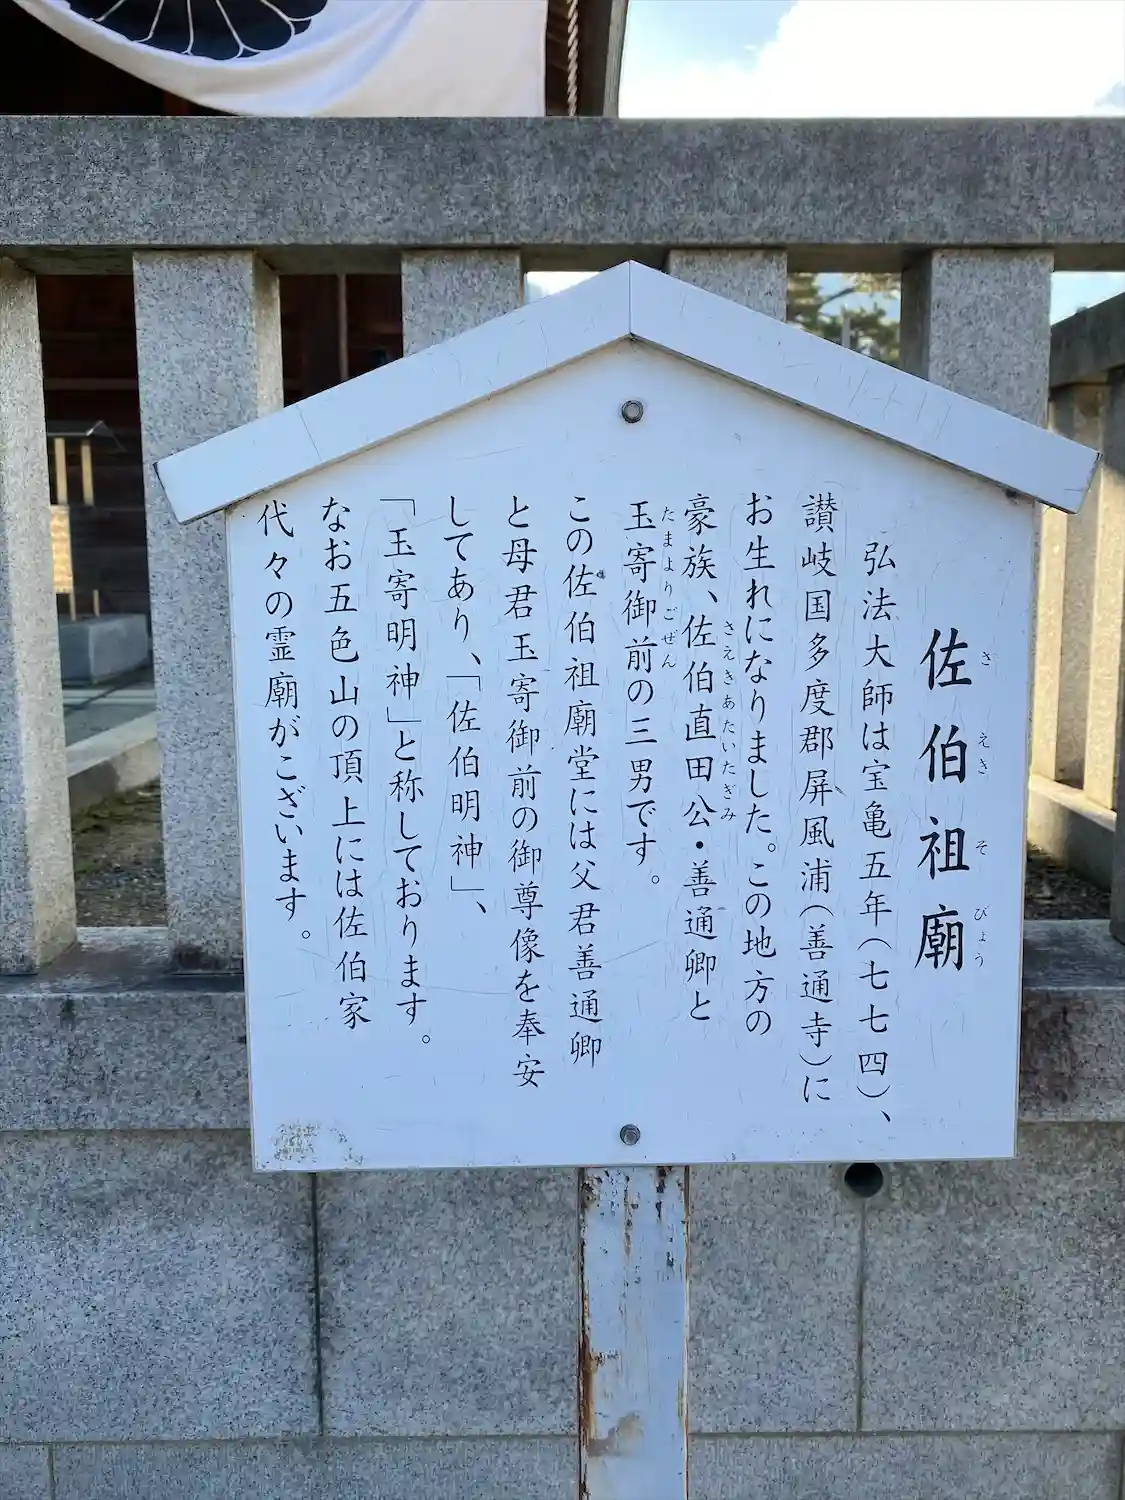 佐伯祖廟
さえきそびょう
弘法大師は宝亀五年(七七四)、
讃岐国多度郡屏風浦(善通寺)に
お生れになりました。この地方の
豪族、佐伯直田公・善通卿と
さえきあたいたぎみ
玉寄御前の三男です。
たまよりごぜん
この佐伯祖廟堂には父君善通卿
と母君玉寄御前の御尊像を奉安
してあり、「佐伯明神」、
「玉寄明神」と称しております。
なお五色山の頂上には佐伯家
代々の霊廟がございます。